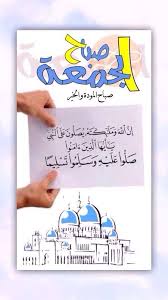 صباح
الجمعة
صباح المودة والخير
إن الله وملئكته يصلون على النبي
يأيها الذين ءامنوا
صلوا عليه وسلموا تسليما